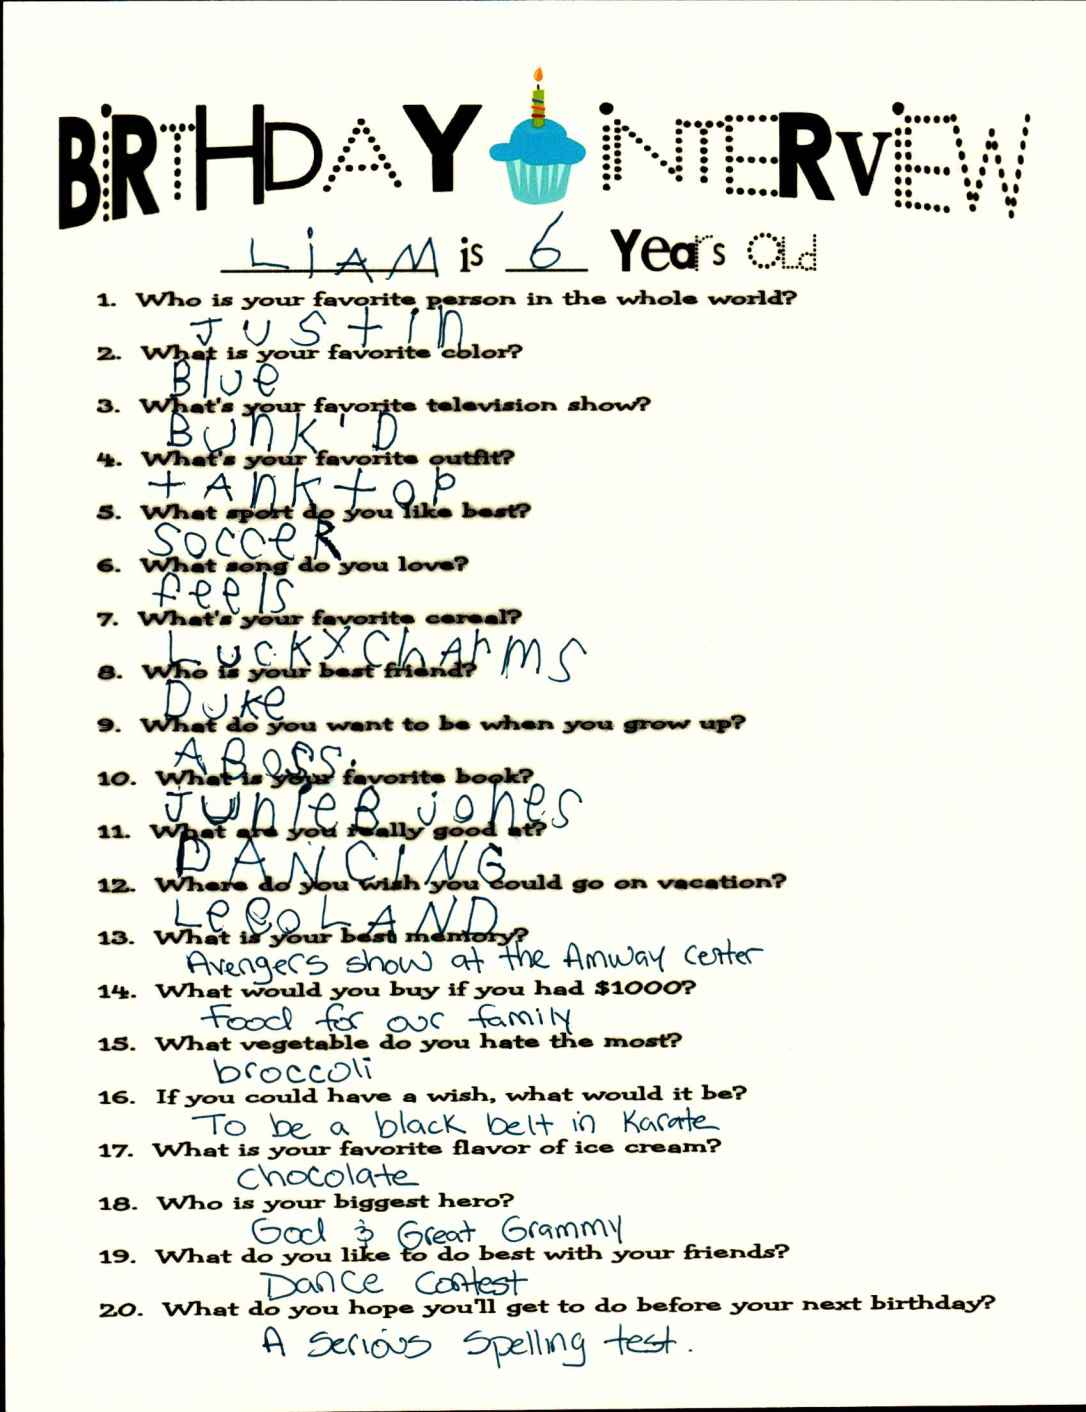 BiRTHDAY iNTERViEW
LiAM is 6 Years Old
1. Who is your favorite person in the whole world?
JUStin
2. What is your favorite color?
Blue
3. What's your favorite television show?
BUnK'D
4. What's your favorite outfit?
tAnktop
5. What sport do you like best?
SocceR
6. What song do you love?
feels
7. What's your favorite cereal?
LuckyChArmS
8. Who is your best friend?
Duke
9. What do you want to be when you grow up?
A Boss.
10. What is your favorite book?
JunieB jones
11. What are you really good at?
DANCING
12. Where do you wish you could go on vacation?
LegoLAND
13. What is your best memory?
Avengers show at the Amway Center
14. What would you buy if you had $1000?
Food for our family
15. What vegetable do you hate the most?
broccoli
16. If you could have a wish, what would it be?
To be a black belt in Karate
17. What is your favorite flavor of ice cream?
chocolate
18. Who is your biggest hero?
God & Great Grammy
19. What do you like to do best with your friends?
Dance Contest
20. What do you hope you'll get to do before your next birthday?
A serious spelling test.